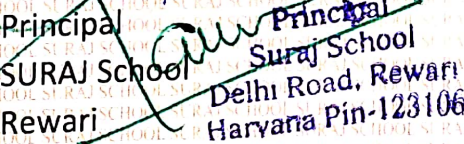 Principal
SURAJ School
Rewari
Principal
Suraj School
Delhi Road, Rewari
Haryana Pin-123106